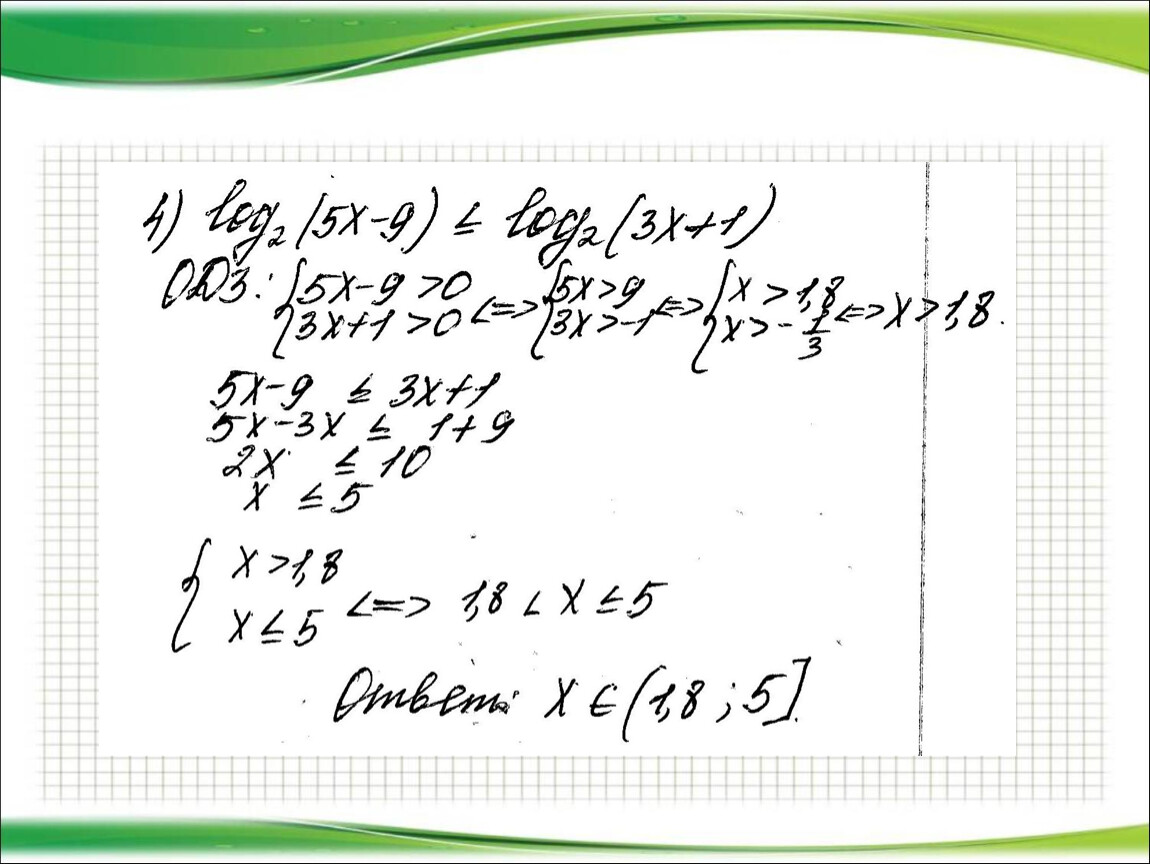 4) log₂(5x-9) ≤ log₂(3x+1)
ОДЗ: {5x-9>0 <=> {5x>9 <=> {x>1,8 <=> x>1,8.
{3x+1>0 {3x>-1 {x>-1/3
5x-9 ≤ 3x+1
5x-3x ≤ 1+9
2x ≤ 10
x ≤ 5
{x>1,8
{x≤5 <=> 1,8 < x ≤ 5
Ответ: x ∈ (1,8 ; 5].